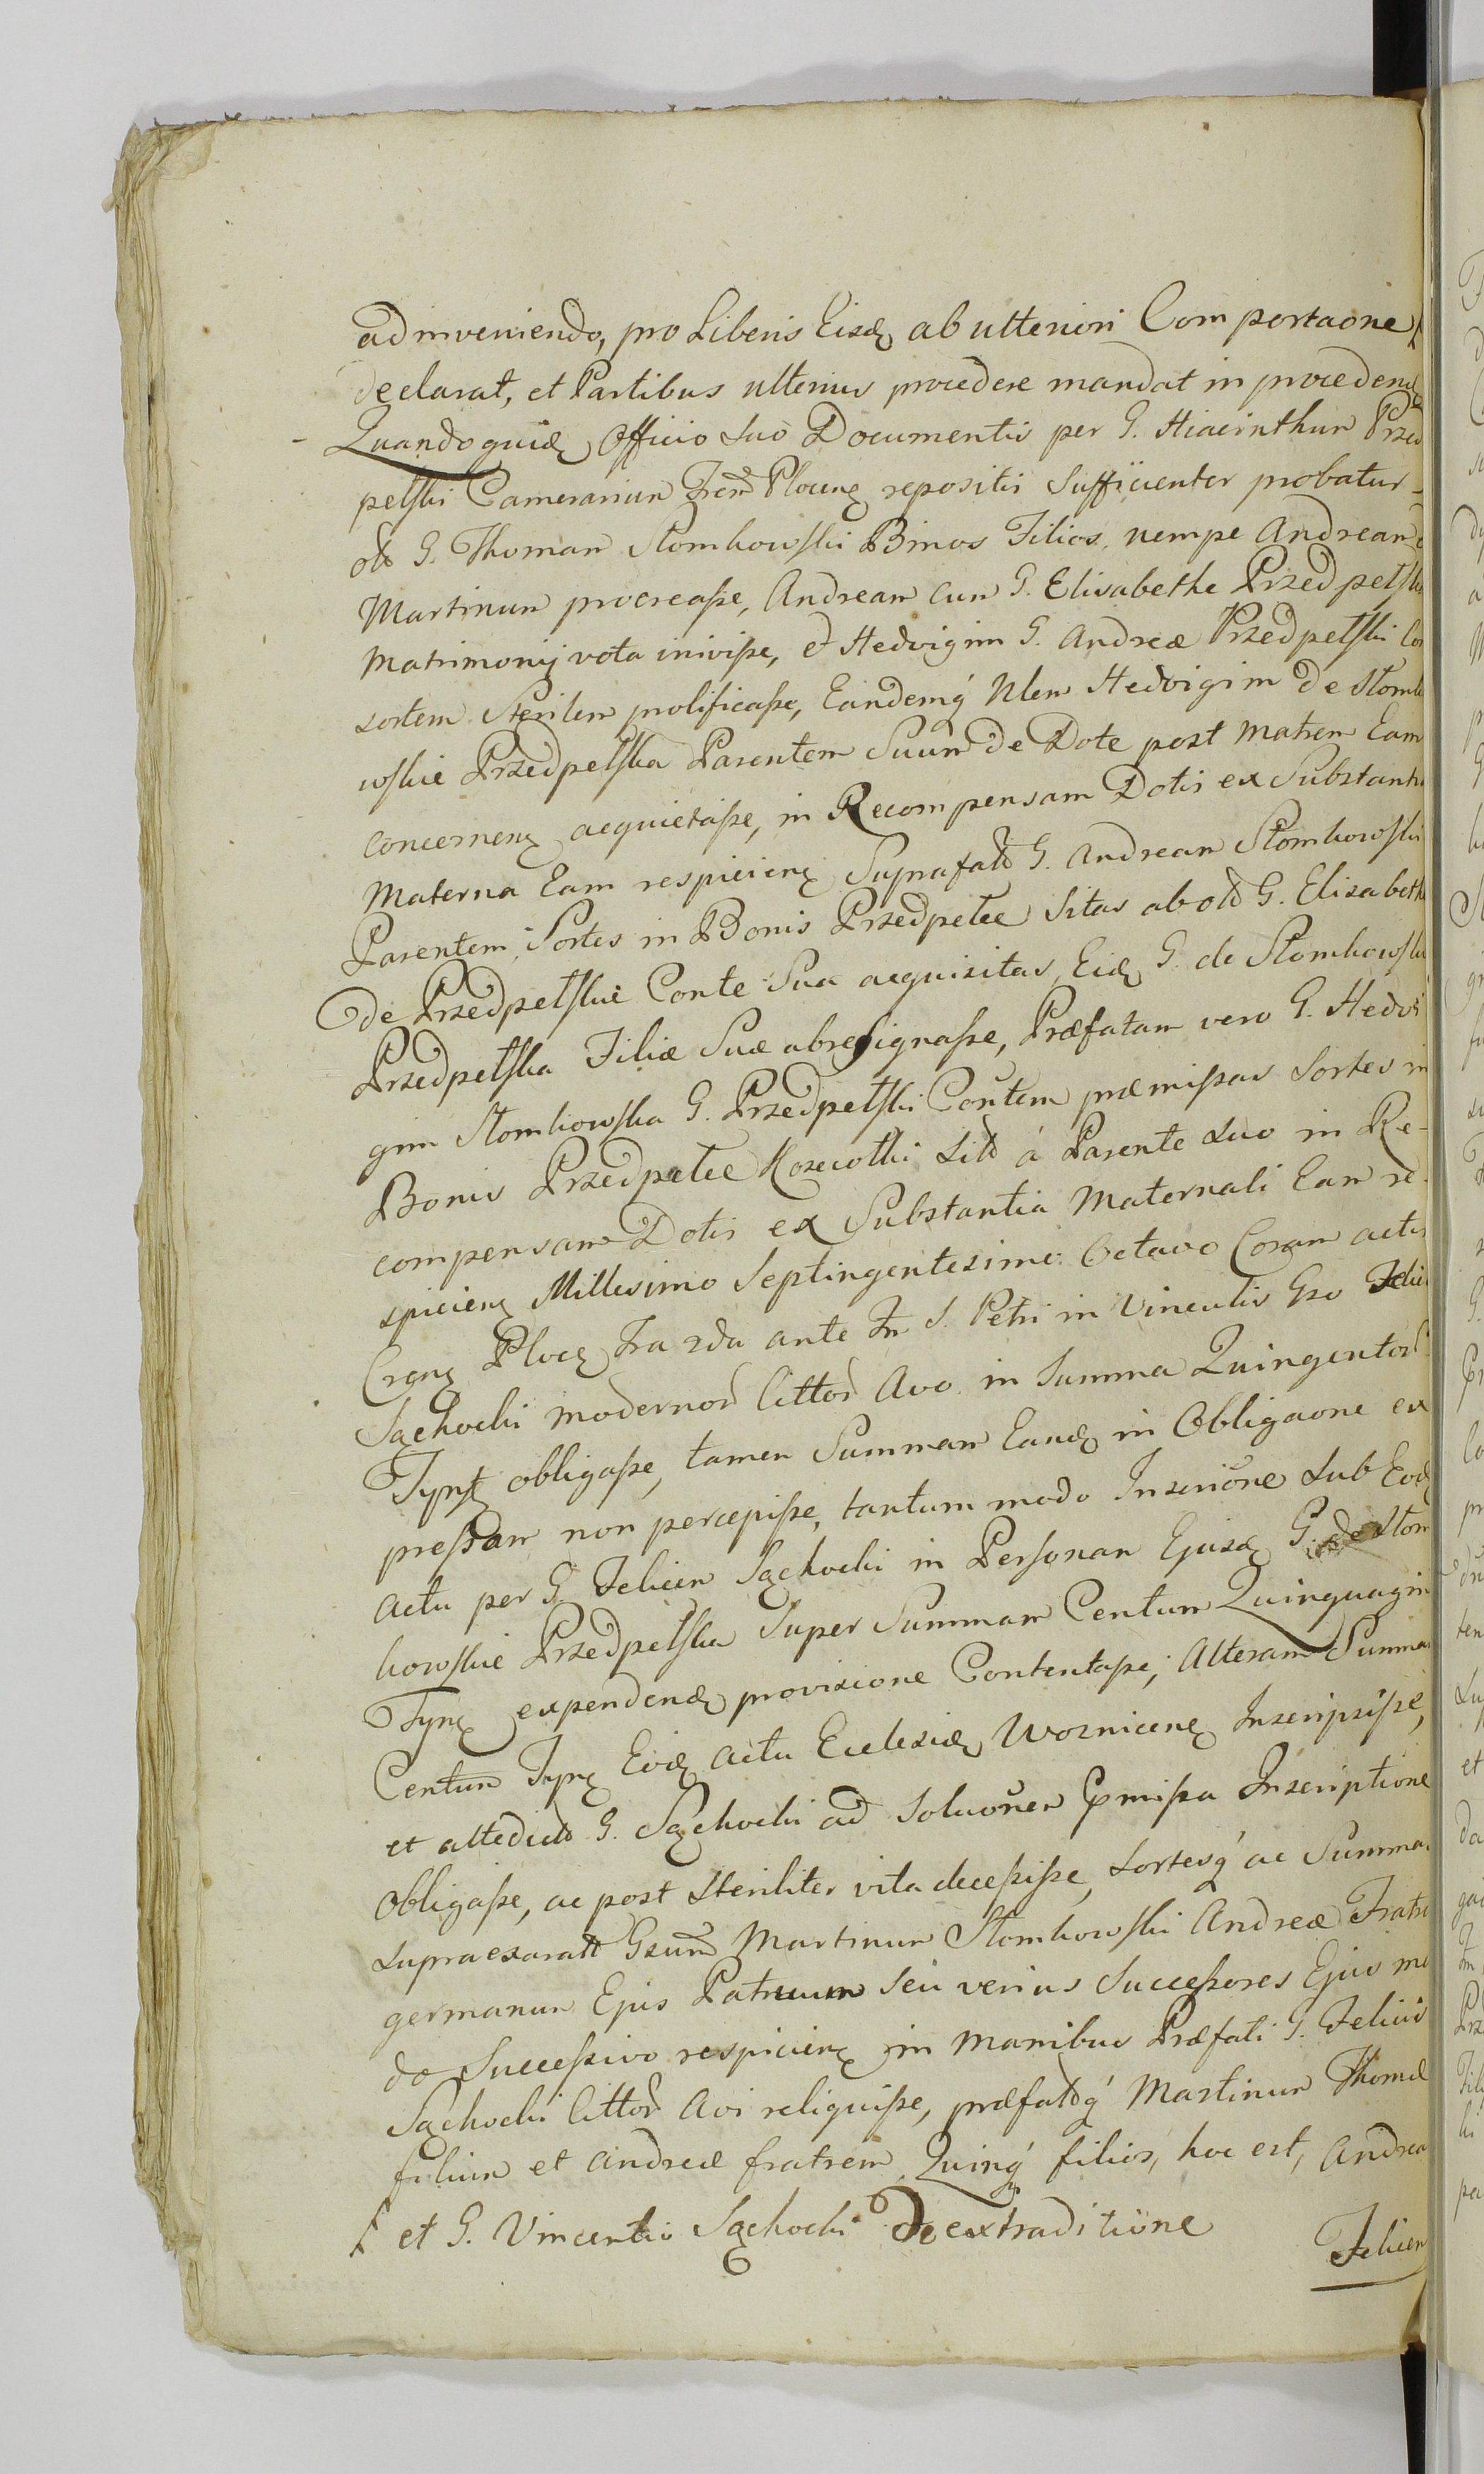 adinveniendo, pro Liberis Eisdꝫ ab ulteriori Comportaōne
declarat, et Partibus ulterius procedere mandat in procedendꝫ
Quandoquidꝫ Officio Suo Documentis per G. Hiacinthum Przed
pelski Camerarium Trem̃ Plocenꝫ repositis Sufficienter probatur
olt̃ G. Thomam Słomkowski Binos Filios, nempe Andream
Martinum procreaſse, Andream cum G. Elisabethe Przedpelska
Matrimonij vota inivißse, et Hedvigim G. Andreæ Przedpelski Con
sortem Sterilem prolificaſse, Eandemq́ Nlem Hedvigim de Słomko
wskie Przedpelska Parentem Suum de Dote post Matrem Eam
concernenꝫ acquietaſse, in Recompensam Dotis ex Substantia
Materna Eam respicienꝫ Suprafatt̃ G. Andream Słomkowski
Parentem, Sortes in Bonis Przedpełce Sitas ab olt̃ G. Elisabeth
de Przedpelskie Conte Sua acquisitas, Eidꝫ G. de Słomkowskie
Przedpelska Filiæ Suæ abresignaſse, Præfatam vero G. Hedvi
gim Słomkowska G. Przedpelski Contem præmiſsas Sortes in
Bonis Przedpełce Kozewołki Sitt̃ á Parente Suo in Re-
compensam Dotis ex Substantia Maternali Eam re-
spicienꝫ Millesimo Septingentesimo Octavo Coram actis
Plocꝫ Fra 2da ante S. Petri in Vinculis Gso Felici
Sąchocki modernor̃ Cittor̃ Avo in Summa Quingentor̃
Tynfꝫ obligaſse, tamen Summam Eandꝫ in Obligaōne ex
preſsam non percepiſse, tantum modo Inscriōne Sub Eodꝫ
actu per G. Felicem Sąchocki in Personam Ejusdꝫ G. de Słom
kowskie Przedpelska Super Summam Centum Quinquagin
Tynꝫ expendendꝫ provisione Contentaſse, Alteram Summam
Centum Tynꝫ Eodꝫ actu Ecclesiæ Woznicenꝫ Inscripsiſse,
et attedict̃ G. Sąchocki ad Soluōnem præmiſsa Inscriptione
Obligaſse, ac post Steriliter vita deceſsiſse, Sortesq́ ac Summas
Supraexaratt̃ Gsum̃ Martinum Słomkowski Andreæ Fratre
germanum Ejus Patruum Seu verius Succeſsores Ejus mo
do Succeſsivo respicienꝫ in Manibus Præfati G. Felicis
Sąchocki Cittor̃ Avi reliquiſse, præfatt̃q́ Martinum Thomæ
filium et Andreæ fratrem, Quinq́ filios, hoc est, Andrea
et G. Vincentio Sąchocki de extraditione
Felicem